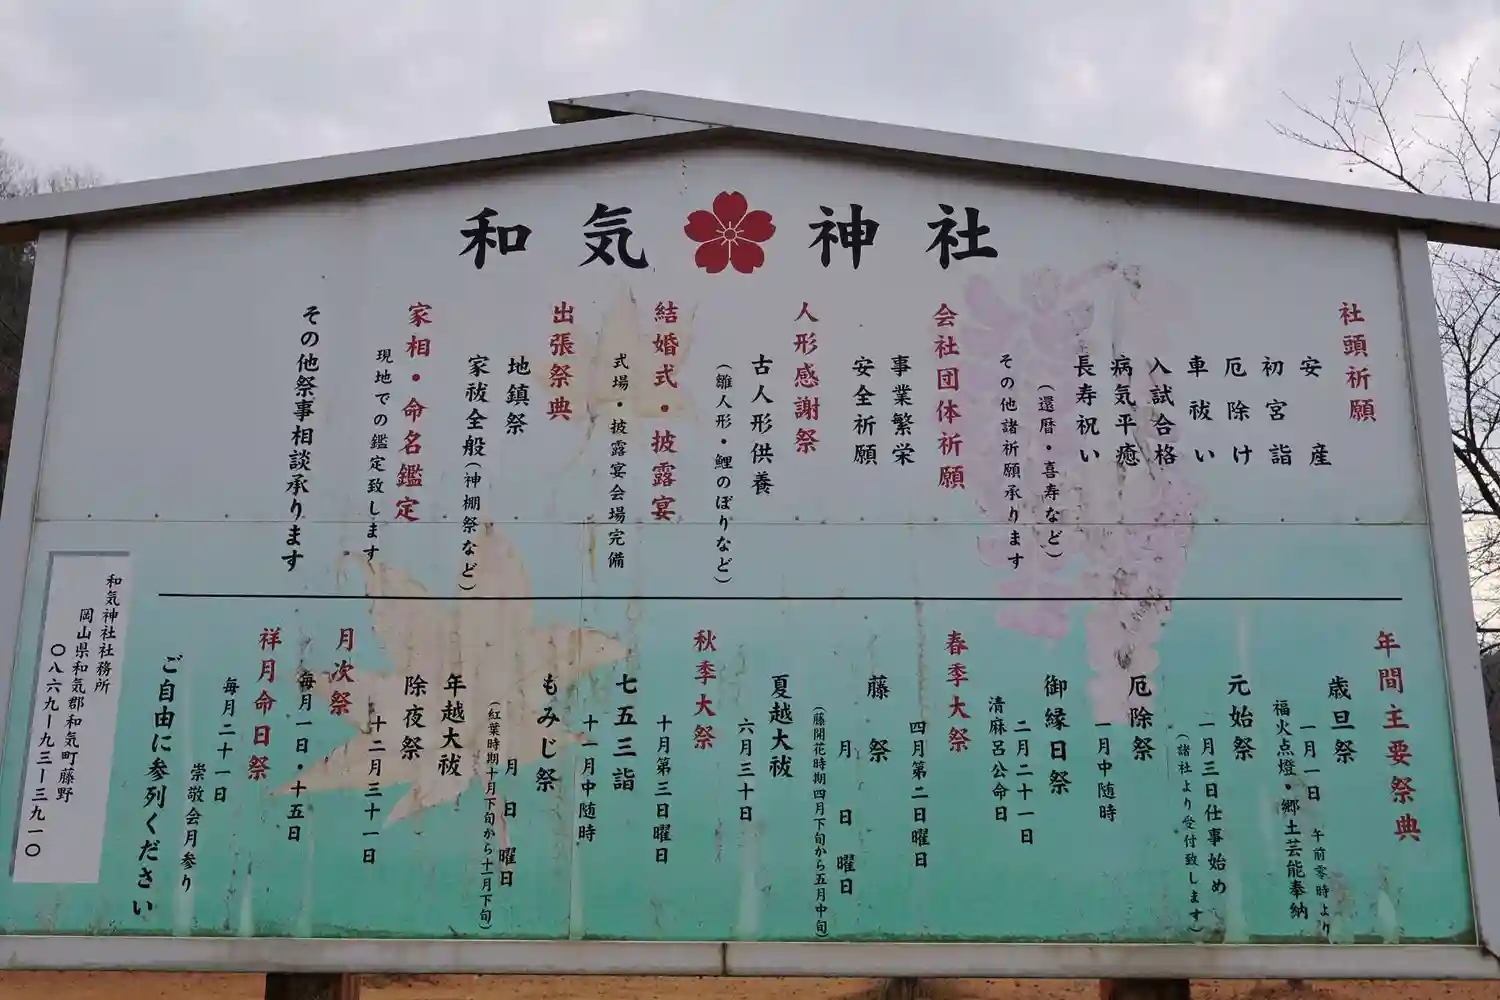 和気神社
社頭祈願
安産
初宮詣
厄除け
車祓い
入試合格
病気平癒
長寿祝い
（還暦・喜寿など）
その他諸祈願承ります
会社団体祈願
事業繁栄
安全祈願
人形感謝祭
古人形供養
（雛人形・鯉のぼりなど）
結婚式・披露宴
式場・披露宴会場完備
出張祭典
地鎮祭
家祓全般（神棚祭など）
家相・命名鑑定
現地での鑑定致します
その他祭事相談承ります
年間主要祭典
歳旦祭
一月一日 午前零時より
福火点燈・郷土芸能奉納
元始祭
一月三日仕事始め
（諸社より受付致します）
厄除祭
一月中随時
御縁日祭
二月二十一日
清麻呂公命日
春季大祭
四月第二日曜日
藤祭
月 日 曜日
（藤開花時期四月下旬から五月中旬）
夏越大祓
六月三十日
秋季大祭
十月第三日曜日
七五三詣
十一月中随時
もみじ祭
月 日 曜日
（紅葉時期十月下旬から十一月下旬）
年越大祓
除夜祭
十二月三十一日
月次祭
毎月一日・十五日
祥月命日祭
毎月二十一日
崇敬会月参り
ご自由に参列ください
和気神社社務所
岡山県和気郡和気町藤野
〇八六九ー九三ー三九一〇